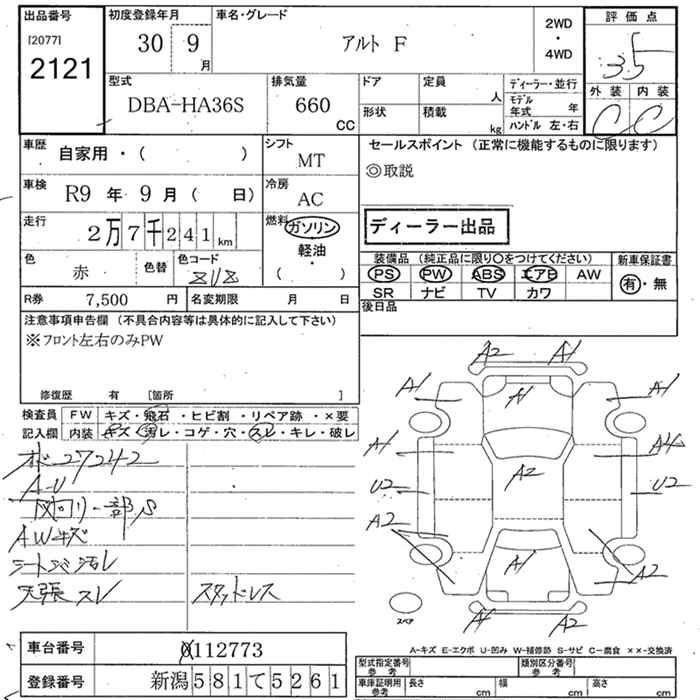 出品番号
[2077]
2121
初度登録年月
30 9月
車名・グレード
アルト F
2WD
・
4WD
評価点
3.5
外装 内装
C C
型式
DBA-HA36S
排気量
660
CC
ドア
形状
定員
人
積載
kg
ディーラー・並行
モデル年式 年
ハンドル 左・右
車歴
自家用・( )
シフト
MT
車検
R9 年 9 月 ( 日)
冷房
AC
走行
2万7千241km
燃料
ガソリン
軽油
・
( )
色
赤
色替
色コード
ZUZ
R券
7,500 円
名変期限 月 日
セールスポイント (正常に機能するものに限ります)
◎取説
ディーラー出品
装備品 (純正品に限り〇をつけてください)
PS PW ABS エアB AW
SR ナビ TV カワ
新車保証書
有・無
後日品
注意事項申告欄 (不具合内容等は具体的に記入して下さい)
※フロント左右のみPW
修復歴 有 [箇所 ]
検査員
記入欄
FW キズ・飛石・ヒビ割・リペア跡・×要
内装 キズ・汚レ・コゲ・穴・スレ・キレ・破レ
27242
A-U
一部S
AWキズ
汚レ
天張スレ
スタッドレス
A2 A1
A1 A1 A1
A1 A2 A4
U2 U2
A2
A1 A2
スペア
A1 A2
A-キズ E-エクボ U-凹み W-補修跡 S-サビ C-腐食 ××-交換済
車台番号
112773
登録番号
新潟581て5261
型式指定番号
参考
類別区分番号
参考
車庫証明用
参考
長さ cm
幅 cm
高さ cm